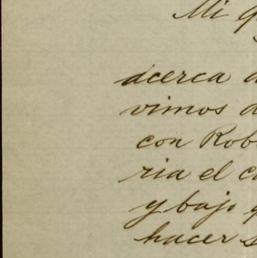 Mi q
acerca d
vimos d
con Rob
ria el c
y bajo q
hacer s